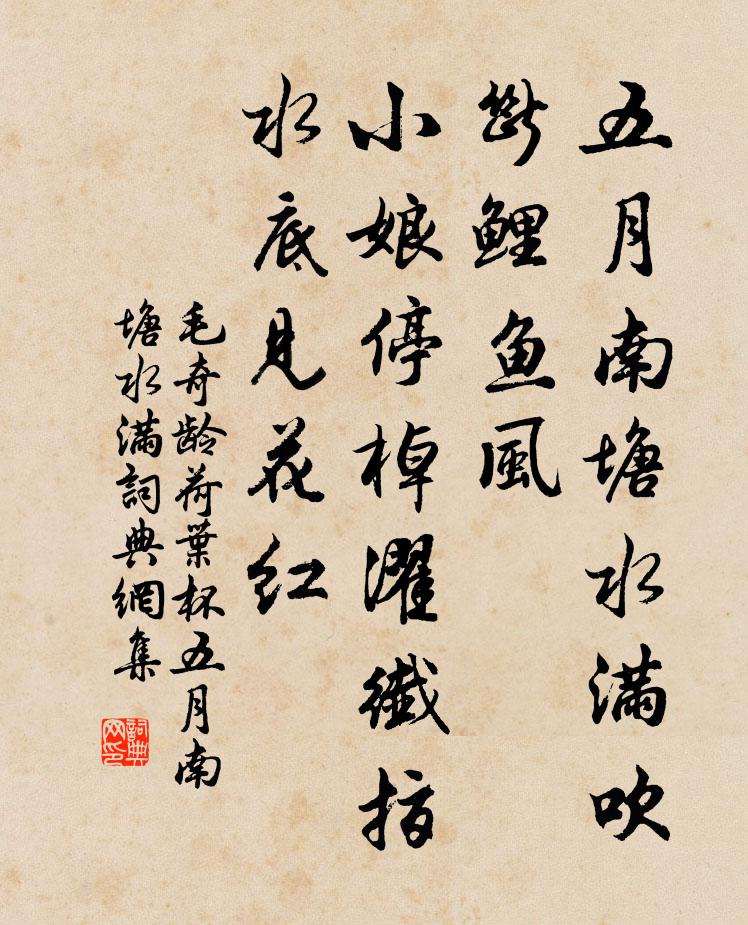 五月南塘水满吹
断鲤鱼風
小娘停棹濯纖指
水底見花红
毛奇龄荷葉杯五月南
塘水满詞典網集
詞典
网印